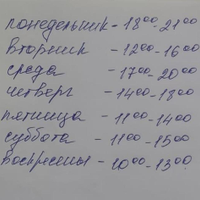 понедельник - 18⁰⁰-21⁰⁰
вторник - 12⁰⁰-16⁰⁰
среда - 17⁰⁰-20⁰⁰
четверг - 14⁰⁰-18⁰⁰
пятница - 11⁰⁰-14⁰⁰
суббота - 11⁰⁰-15⁰⁰
воскресены - 10⁰⁰-13⁰⁰